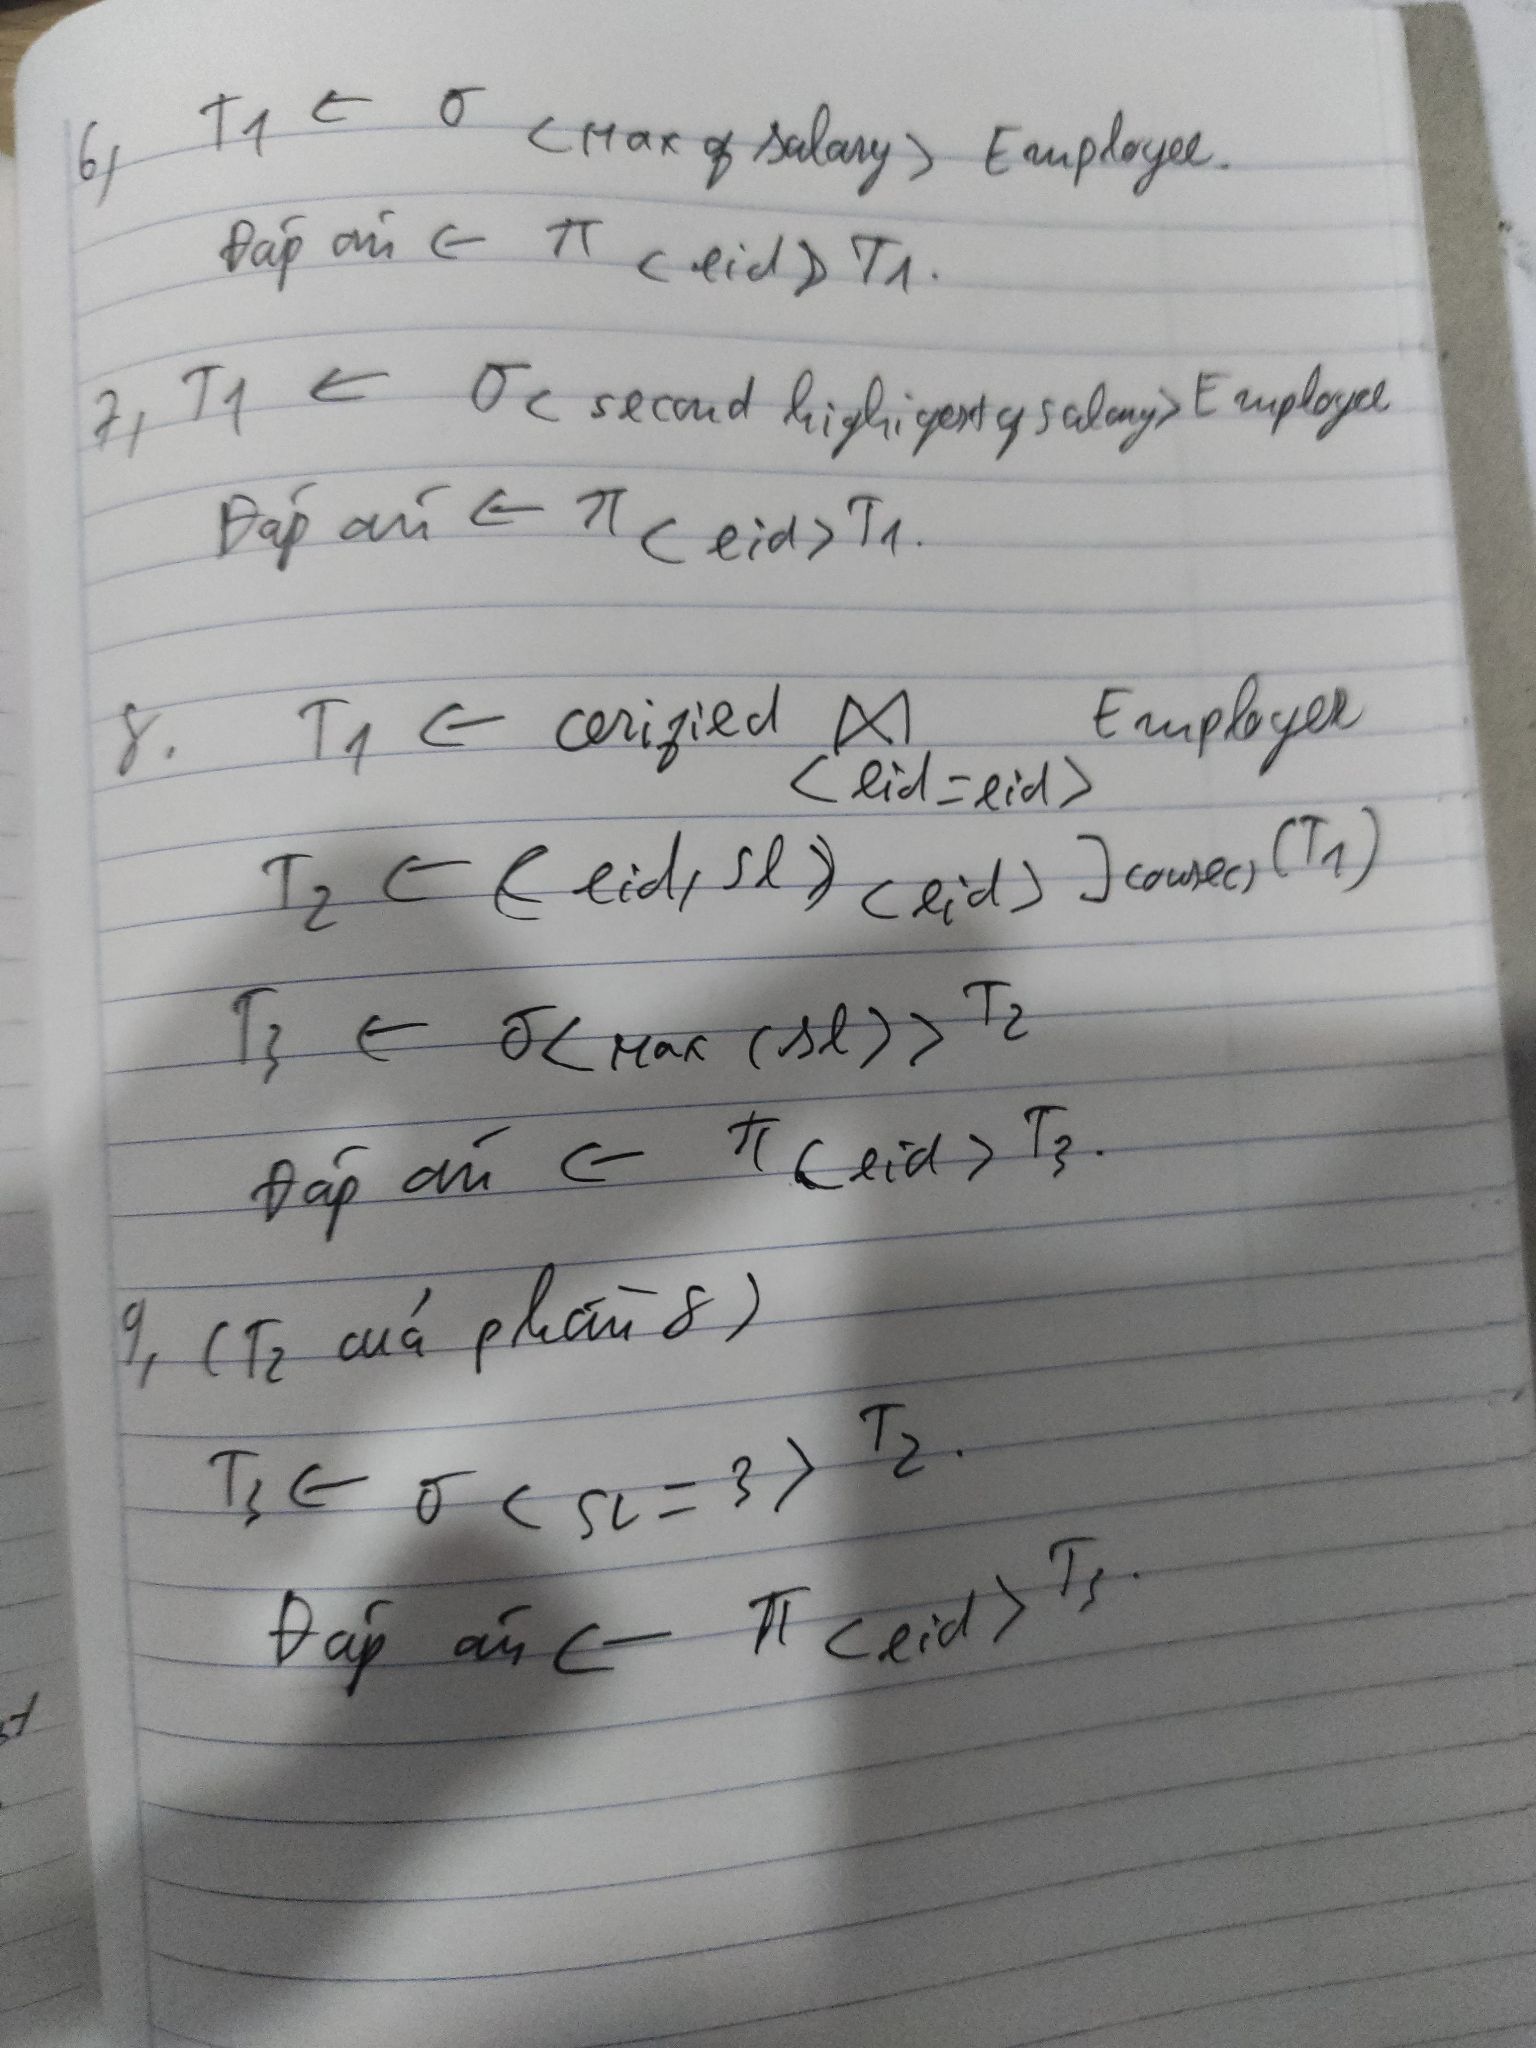 6, T1 ← σ <Max of salary> Employee.
Đáp án ← π <eid> T1.
7, T1 ← σ < second highigest of salary> Employee
Đáp án ← π <eid> T1.
8. T1 ← cerified ⋈ Employee
<eid=eid>
T2 ← (eid, sl) <eid> ] (T1)
T3 ← σ< Max (sl)> T2
Đáp án ← π <eid> T3.
9, (T2 phần 8)
T3 ← σ < SL = 3> T2.
Đáp án ← π <eid> T3.